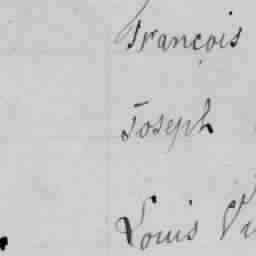 François
Joseph
Louis